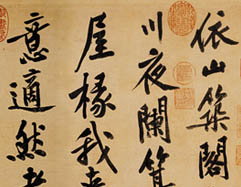 依山築閣
川夜闌箕
屋椽我來
意適然老